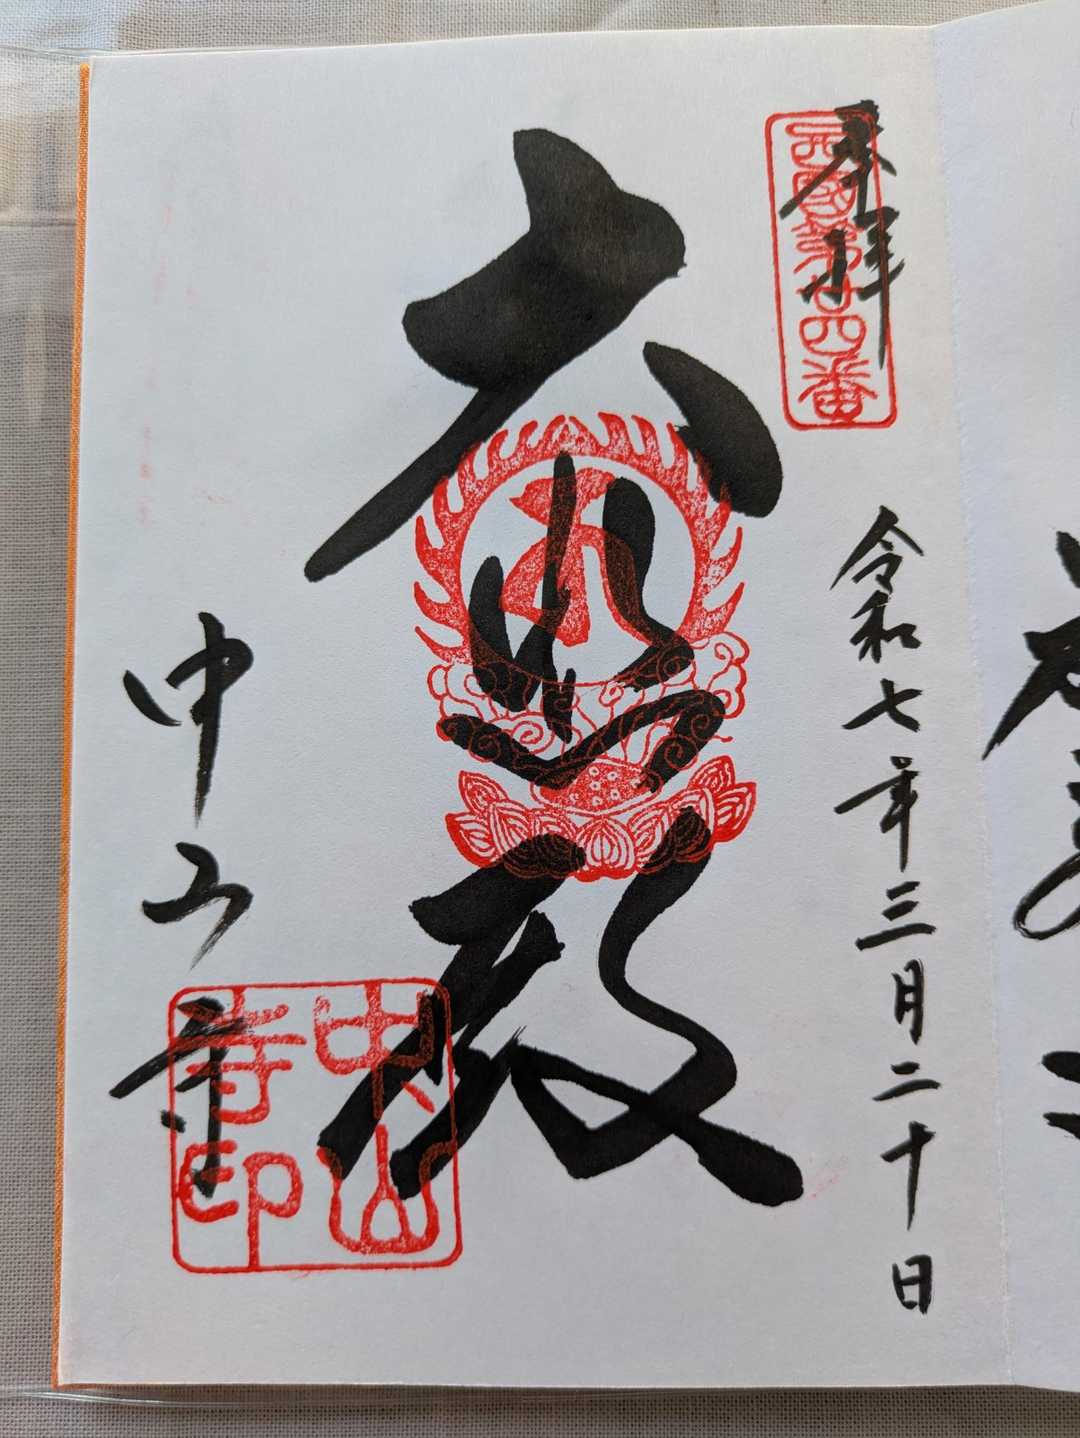 奉拝
西國第廿四番
令和七年三月二十日
大悲殿
中山寺
中山寺印